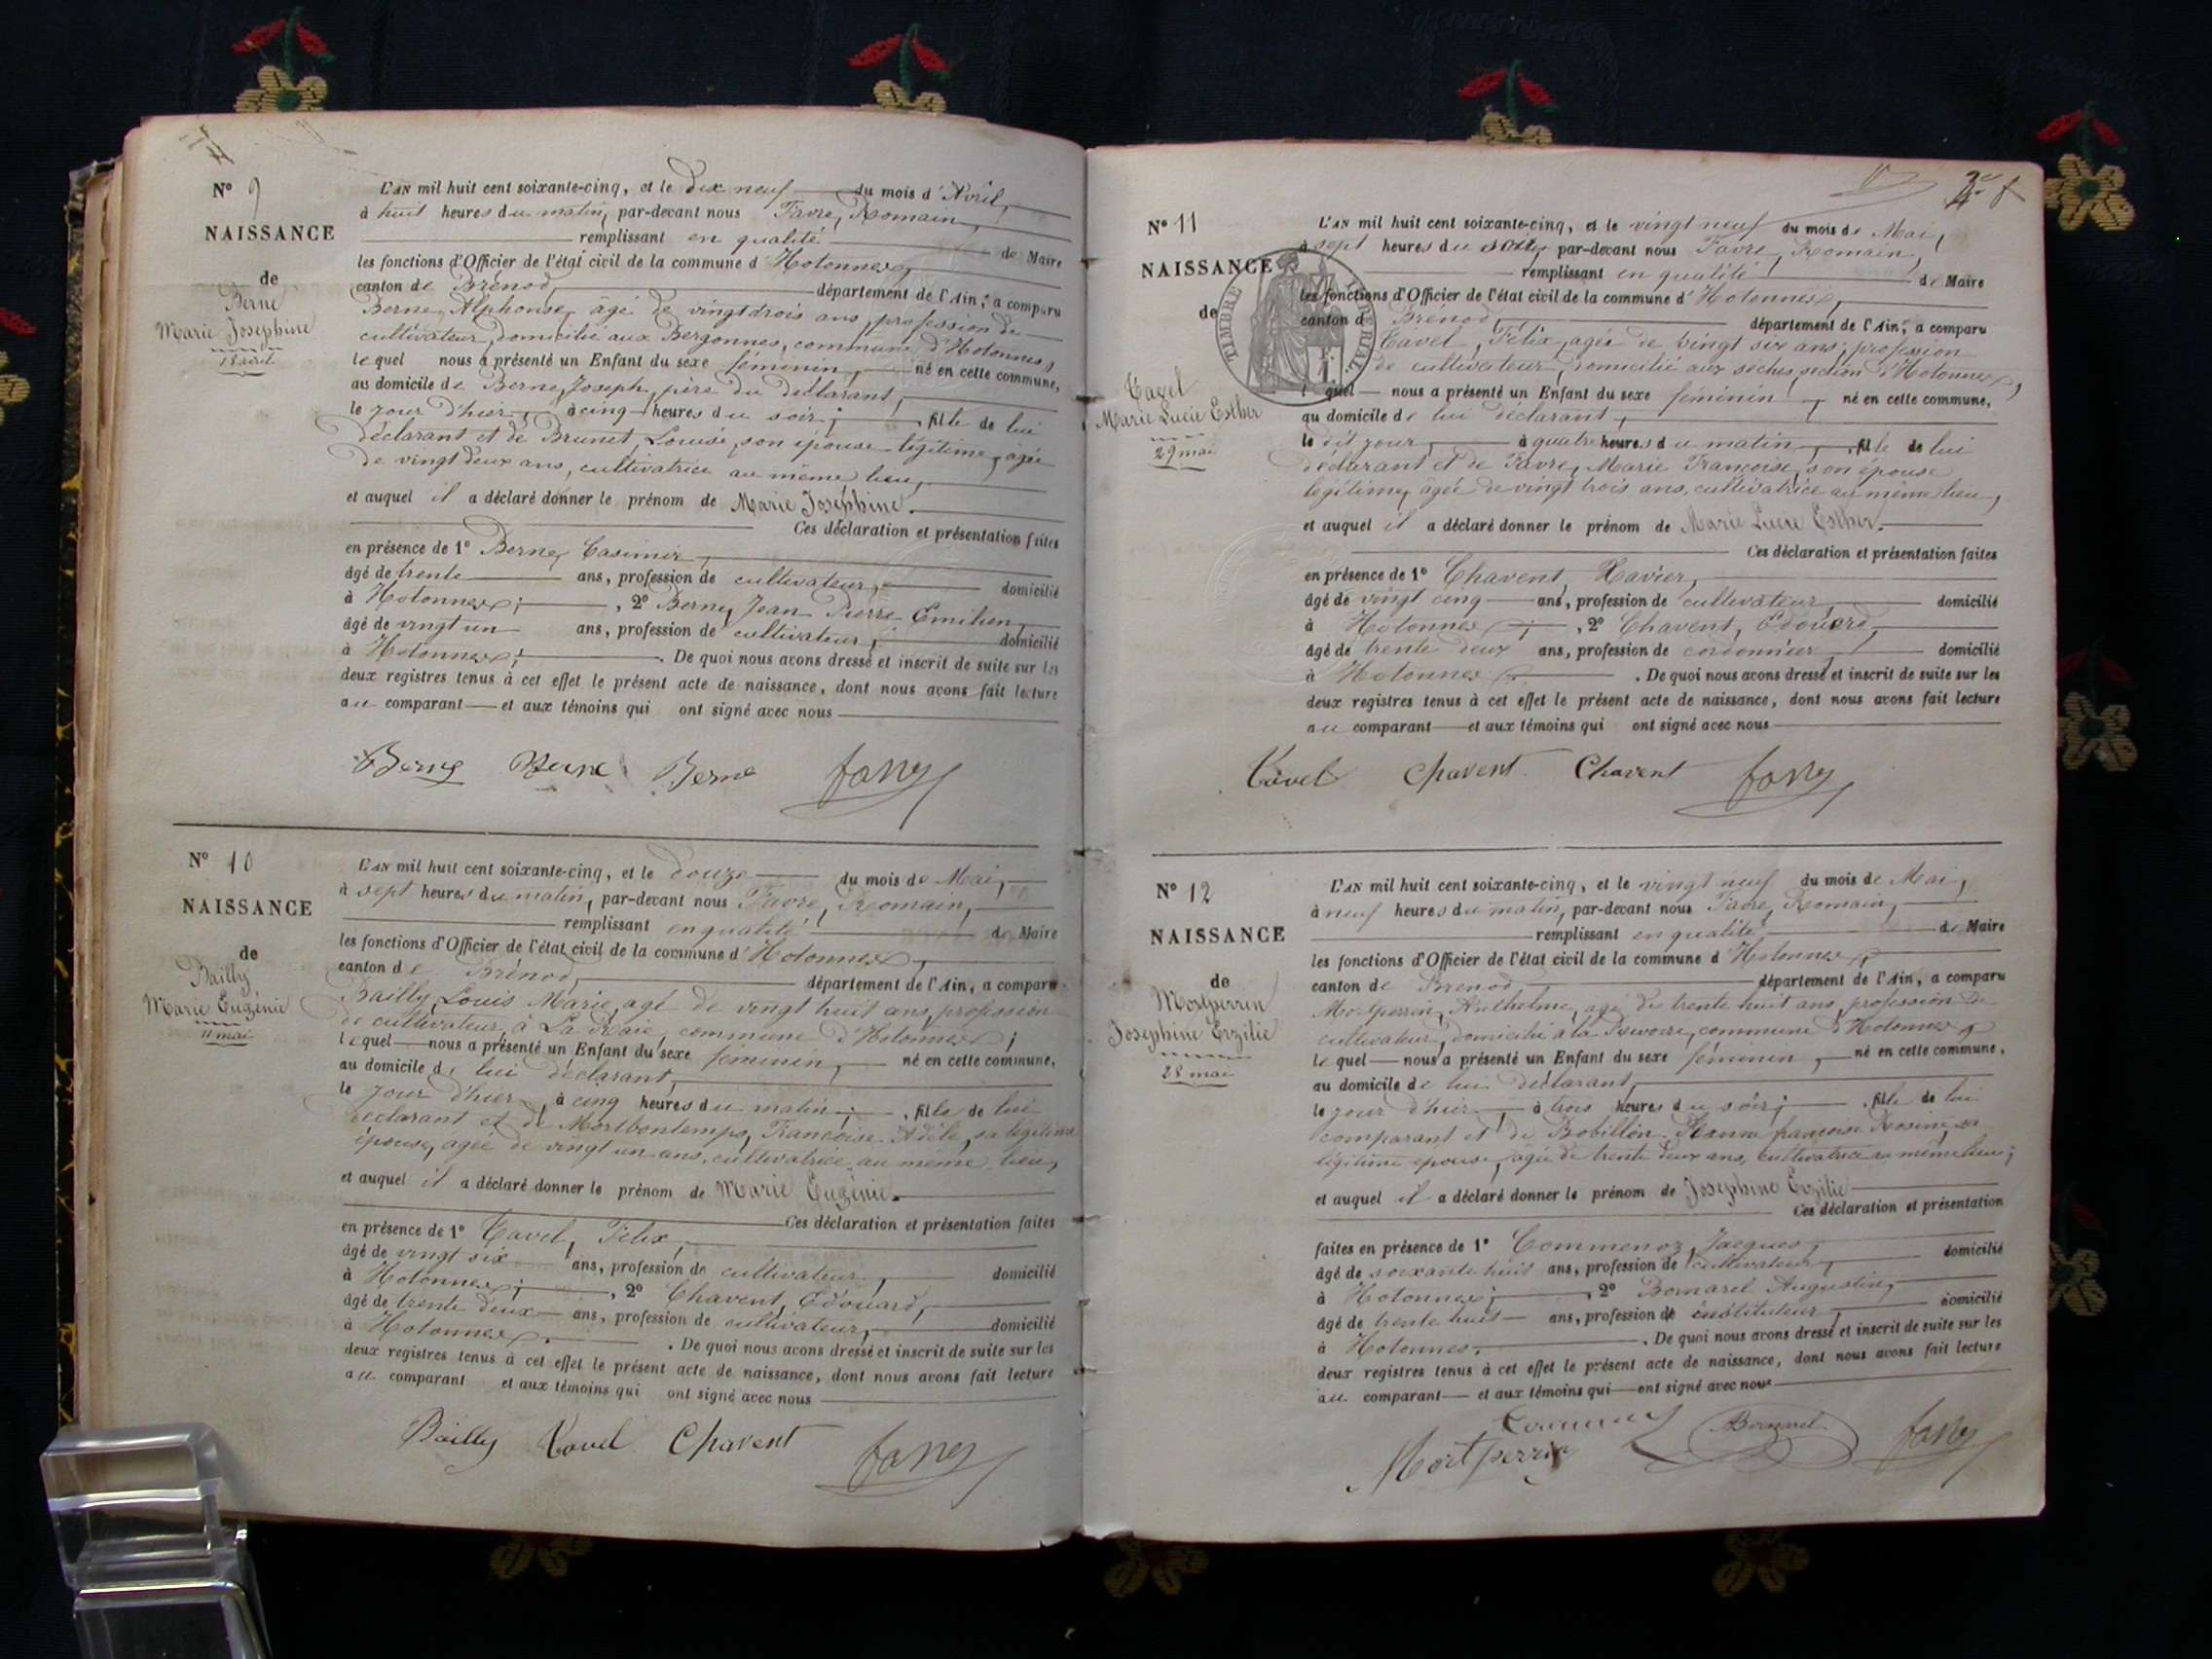 N° 9
NAISSANCE
de
Berne
Marie Josephine
18 avril
L'AN mil huit cent soixante-cinq, et le dix neuf du mois d'Avril,
à huit heures du matin, par-devant nous Favre, Romain,
remplissant en qualité de Maire
les fonctions d'Officier de l'état civil de la commune d'Hotonnes,
canton de Brénod, département de l'Ain, a comparu
Berne, Alphonse, âgé de vingt trois ans, profession de
cultivateur, domicilié aux Bergonnes, commune d'Hotonnes,
le quel nous a présenté un Enfant du sexe féminin, né en cette commune,
au domicile de Berne, Joseph, père du déclarant,
le jour d'hier, à cinq heures du soir; fille de lui
déclarant et de Brunet, Louise, son épouse légitime, agée
de vingt deux ans, cultivatrice au même lieu,
et auquel il a déclaré donner le prénom de Marie Josephine.
Ces déclaration et présentation faites
en présence de 1° Berne, Casimir,
âgé de trente ans, profession de cultivateur, domicilié
à Hotonnes; , 2° Berne, Jean Pierre Emilien,
âgé de vingt un ans, profession de cultivateur, domicilié
à Hotonnes; . De quoi nous avons dressé et inscrit de suite sur les
deux registres tenus à cet effet le présent acte de naissance, dont nous avons fait lecture
au comparant et aux témoins qui ont signé avec nous
Berne Berne Berne favre
N° 10
NAISSANCE
de
Bailly
Marie Eugénie
11 mai
L'AN mil huit cent soixante-cinq, et le douze du mois de Mai,
à sept heures du matin, par-devant nous Favre, Romain,
remplissant en qualité de Maire
les fonctions d'Officier de l'état civil de la commune d'Hotonnes,
canton de Brénod, département de l'Ain, a comparu
Bailly, Louis Marie, agé de vingt huit ans, profession
de cultivateur, à La commune d'Hotonnes;
lequel nous a présenté un Enfant du sexe féminin, né en cette commune,
au domicile de lui déclarant,
le jour d'hier, à cinq heures du matin; , fille de lui
déclarant et de Mortbontemps, Françoise Adèle, sa légitime
épouse, agée de vingt un ans, cultivatrice au même lieu,
et auquel il a déclaré donner le prénom de Marie Eugénie.
Ces déclaration et présentation faites
en présence de 1° Tavel, Félix,
âgé de vingt six ans, profession de cultivateur, domicilié
à Hotonnes; , 2° Chavent, Edouard,
âgé de trente deux ans, profession de cultivateur, domicilié
à Hotonnes. . De quoi nous avons dressé et inscrit de suite sur les
deux registres tenus à cet effet le présent acte de naissance, dont nous avons fait lecture
au comparant et aux témoins qui ont signé avec nous
Bailly Tavel Chavent favre
N° 11
NAISSANCE
de
Tavel
Marie Lucie Esther
29 mai
TIMBRE IMPERIAL
L'AN mil huit cent soixante-cinq, et le vingt neuf du mois de Mai,
à sept heures du soir, par-devant nous Favre, Romain,
remplissant en qualité de Maire
les fonctions d'Officier de l'état civil de la commune d'Hotonnes,
canton d Brénod, département de l'Ain, a comparu
Tavel, Félix, agée de vingt six ans, profession
de cultivateur, domicilié aux séches, section d'Hotonnes,
l quel nous a présenté un Enfant du sexe féminin, né en cette commune,
au domicile de lui déclarant,
le dit jour, à quatre heures du matin, , fille de lui
déclarant et de Favre, Marie Françoise, son épouse
legitime, âgée de vingt trois ans, cultivatrice au même lieu,
et auquel il a déclaré donner le prénom de Marie Lucie Esther.
Ces déclaration et présentation faites
en présence de 1° Chavent, Xavier,
âgé de vingt cinq ans, profession de cultivateur, domicilié
à Hotonnes; , 2° Chavent, Edouard,
âgé de trente deux ans, profession de cordonnier, domicilié
à Hotonnes. . De quoi nous avons dressé et inscrit de suite sur les
deux registres tenus à cet effet le présent acte de naissance, dont nous avons fait lecture
au comparant et aux témoins qui ont signé avec nous
Tavel Chavent Chavent favre
N° 12
NAISSANCE
de
Mortperrin
Josephine Erzilie
28 mai
L'AN mil huit cent soixante-cinq, et le vingt neuf du mois de Mai,
à neuf heures du matin, par-devant nous Favre, Romain,
remplissant en qualité de Maire
les fonctions d'Officier de l'état civil de la commune d Hotonnes,
canton de Brenod département de l'Ain, a comparu
Mortperrin, Anthelme, agé de trente huit ans, profession de
cultivateur, domicilié à la commune d'Hotonnes,
le quel nous a présenté un Enfant du sexe féminin, né en cette commune,
au domicile de lui déclarant,
le jour d'hier, à trois heures du soir; , fille de lui
comparant et de Bobillon françoise Rosine, sa
légitime epouse, agée de trente deux ans, cultivatrice au même lieu;
et auquel il a déclaré donner le prénom de Josephine Erzilie
Ces déclaration et présentation
faites en présence de 1° Commenoz, Jacques,
âgé de soixante huit ans, profession de cultivateur, domicilié
à Hotonnes; , 2° Bornarel Augustin,
âgé de trente huit ans, profession de instituteur, domicilié
à Hotonnes. . De quoi nous avons dressé et inscrit de suite sur les
deux registres tenus à cet effet le présent acte de naissance, dont nous avons fait lecture
au comparant et aux témoins qui ont signé avec nous
Bornarel favre
Mortperrin